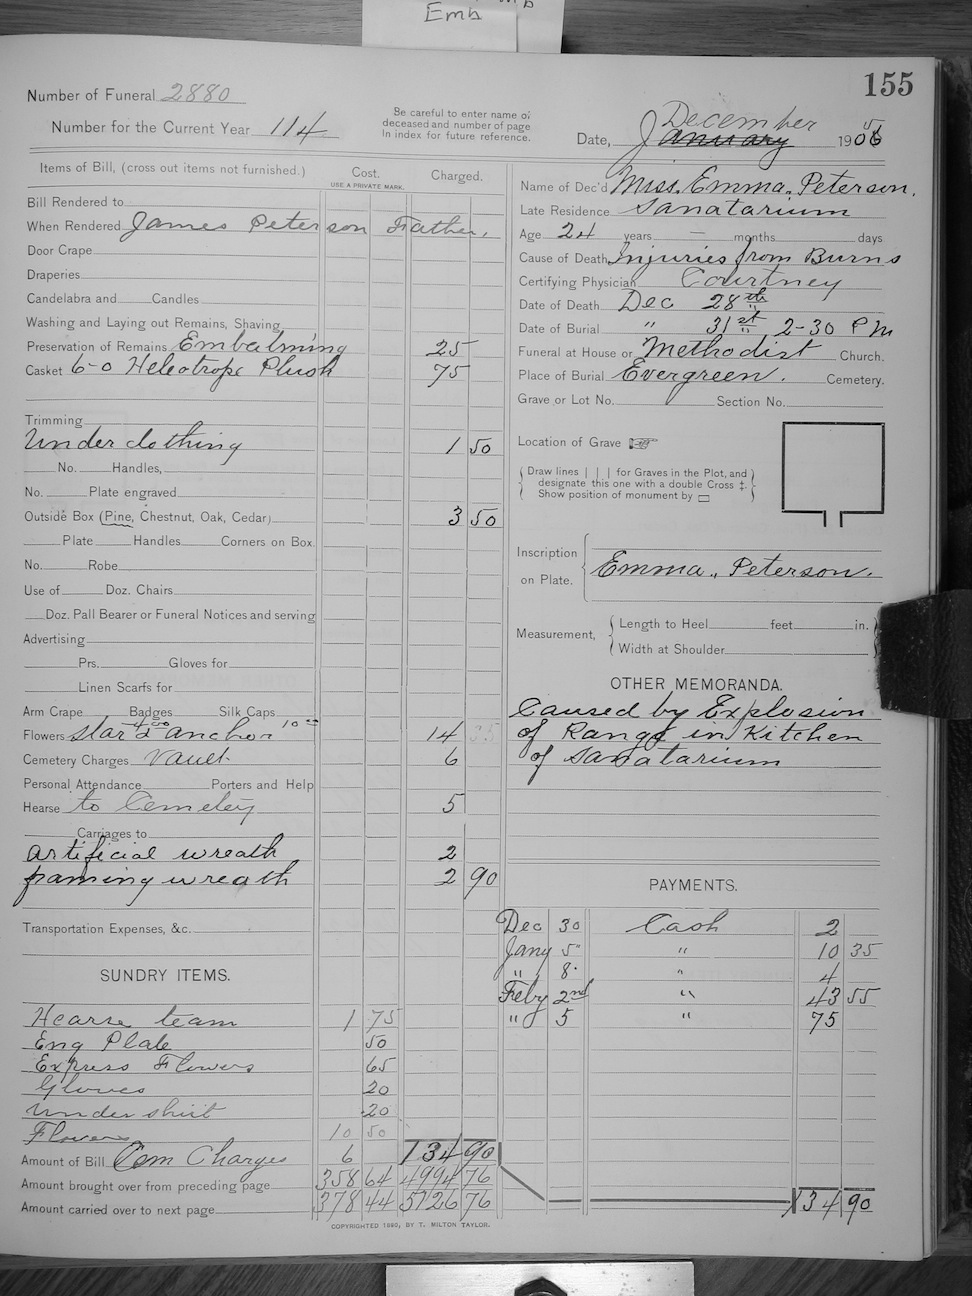 Emb
155
Number of Funeral 2880
Number for the Current Year 114
Be careful to enter name of
deceased and number of page
in index for future reference.
December
Date, January 1905
Items of Bill, (cross out items not furnished.) Cost. Charged.
USE A PRIVATE MARK.
Bill Rendered to
When Rendered James Peterson Father.
Door Crape
Draperies
Candelabra and Candles
Washing and Laying out Remains, Shaving
Preservation of Remains Embalming 25
Casket 6-0 Heleotrope Plush 75
Trimming
Under clothing 1 50
No. Handles,
No. Plate engraved
Outside Box (Pine, Chestnut, Oak, Cedar) 3 50
Plate Handles Corners on Box.
No. Robe
Use of Doz. Chairs
Doz. Pall Bearer or Funeral Notices and serving
Advertising
Prs. Gloves for
Linen Scarfs for
Arm Crape Badges Silk Caps
Flowers Star 4 00 & anchor 10 00 14
Cemetery Charges Vault 6
Personal Attendance Porters and Help
Hearse to Cemetey 5
Carriages to
artificial wreath 2
framing wreath 2 90
Transportation Expenses, &c.
SUNDRY ITEMS.
Hearse team 1 75
Eng Plate 50
Express Flowers 65
Gloves 20
Under shirt 20
Flowers 10 50
Amount of Bill Cem Charges 6 134 90
Amount brought over from preceding page 358 64 4994 76
Amount carried over to next page 378 44 5126 76
COPYRIGHTED 1890, BY T. MILTON TAYLOR.
Name of Dec'd Miss. Emma. Peterson.
Late Residence Sanatarium
Age 24 years — months days
Cause of Death Injuries from Burns
Certifying Physician Courtney
Date of Death Dec 28th
Date of Burial " 31st 2-30 PM
Funeral at House or Methodist Church.
Place of Burial Evergreen. Cemetery.
Grave or Lot No. Section No.
Location of Grave ☞
Draw lines | | | for Graves in the Plot, and
designate this one with a double Cross ‡.
Show position of monument by ▭
Inscription
on Plate. Emma. Peterson.
Measurement, Length to Heel feet in.
Width at Shoulder
OTHER MEMORANDA.
Caused by Explosion
of Range in Kitchen
of Sanatarium
PAYMENTS.
Dec 30 Cash 2
Jany 5" " 10 35
" 8. " 4
Feby 2nd " 43 55
" 5 " 75
134 90